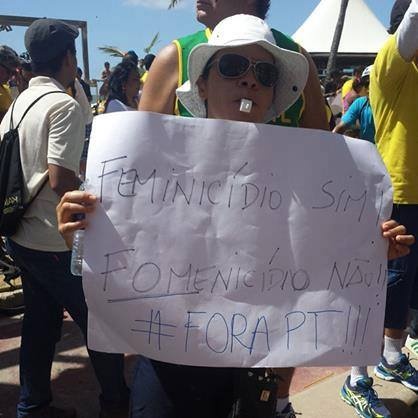 FEMINICÍDIO SIM!
FOMENICÍDIO NÃO!!
#FORA PT!!!